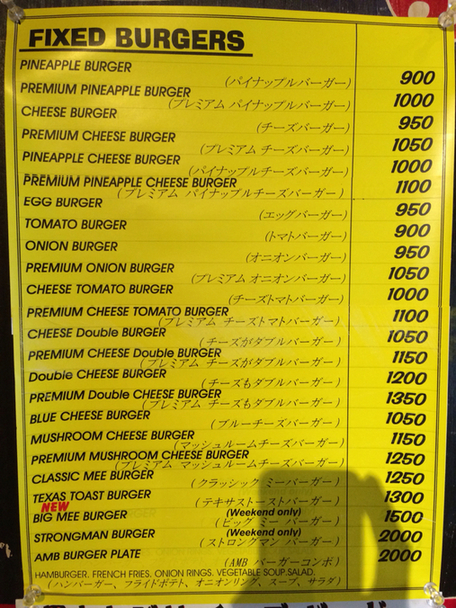 FIXED BURGERS
PINEAPPLE BURGER
(パイナップルバーガー) 900
PREMIUM PINEAPPLE BURGER
(プレミアム パイナップルバーガー) 1000
CHEESE BURGER
(チーズバーガー) 950
PREMIUM CHEESE BURGER
(プレミアム チーズバーガー) 1050
PINEAPPLE CHEESE BURGER
(パイナップルチーズバーガー) 1000
PREMIUM PINEAPPLE CHEESE BURGER
(プレミアム パイナップルチーズバーガー) 1100
EGG BURGER
(エッグバーガー) 950
TOMATO BURGER
(トマトバーガー) 900
ONION BURGER
(オニオンバーガー) 950
PREMIUM ONION BURGER
(プレミアム オニオンバーガー) 1050
CHEESE TOMATO BURGER
(チーズトマトバーガー) 1000
PREMIUM CHEESE TOMATO BURGER
(プレミアム チーズトマトバーガー) 1100
CHEESE Double BURGER
(チーズがダブルバーガー) 1050
PREMIUM CHEESE Double BURGER
(プレミアム チーズがダブルバーガー) 1150
Double CHEESE BURGER
(チーズもダブルバーガー) 1200
PREMIUM Double CHEESE BURGER
(プレミアム チーズもダブルバーガー) 1350
BLUE CHEESE BURGER
(ブルーチーズバーガー) 1050
MUSHROOM CHEESE BURGER
(マッシュルームチーズバーガー) 1150
PREMIUM MUSHROOM CHEESE BURGER
(プレミアム マッシュルームチーズバーガー) 1250
CLASSIC MEE BURGER
(クラッシック ミーバーガー) 1250
TEXAS TOAST BURGER
(テキサストーストバーガー) 1300
NEW
BIG MEE BURGER (Weekend only)
(ビッグ ミー バーガー) 1500
STRONGMAN BURGER (Weekend only)
(ストロングマン バーガー) 2000
AMB BURGER PLATE
(AMB バーガーコンボ) 2000
HAMBURGER. FRENCH FRIES. ONION RINGS. VEGETABLE SOUP. SALAD
(ハンバーガー、フライドポテト、オニオンリング、スープ、サラダ)